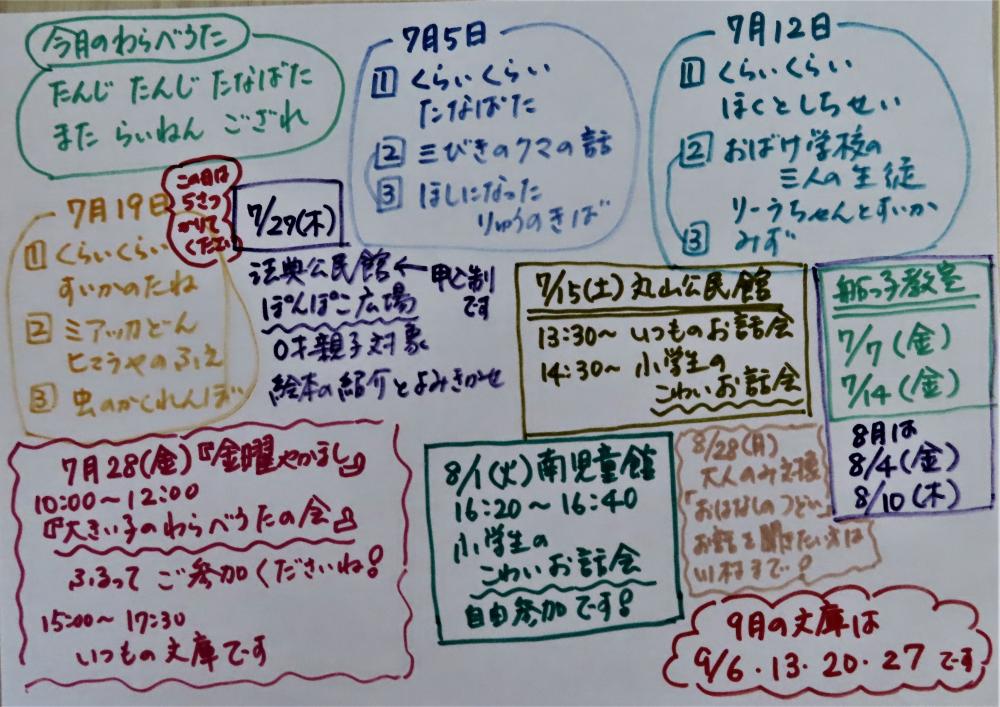 今月のわらべうた
たんじ たんじ たなばた
また らいねん ござれ
7月5日
1 くらいくらい
たなばた
2 三びきのクマの話
3 ほしになった
りゅうのきば
7月12日
1 くらいくらい
ほくとしちせい
2 おばけ学校の
三人の生徒
りーうちゃんとすいか
3 みず
7月19日
1 くらいくらい
すいかのたね
2 ミアッカどん
ヒマラヤのふえ
3 虫のかくれんぼ
この日は
5さつ
かりて
ください
7/27(木)
法典公民館 ← 申込制
です
ぽんぽこ広場
0才親子対象
絵本の紹介とよみきかせ
7/15(土) 丸山公民館
13:30~ いつものお話会
14:30~ 小学生の
こわいお話会
船っ子教室
7/7(金)
7/14(金)
8月は
8/4(金)
8/10(木)
7月28(金)『金曜やかまし』
10:00~12:00
『大きい子のわらべうたの会』
ふるって ご参加くださいね!
15:00~17:30
いつもの文庫です
8/1(火) 南児童館
16:20~16:40
小学生の
こわいお話会
自由参加です!
8/28(月)
大人のみ対象
「おはなしのつどい」
お話を聞きたい方は
川村まで!
9月の文庫は
9/6・13・20・27 です